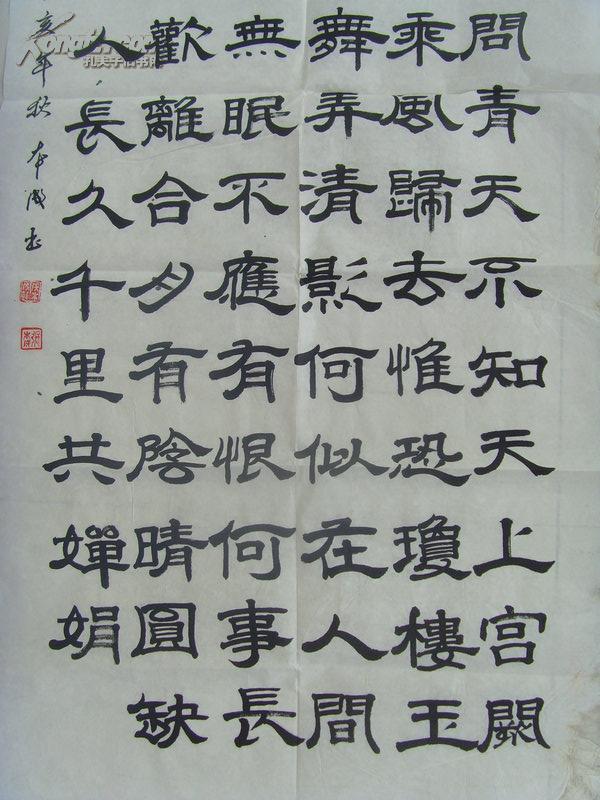 問青天不知天上宮闕
乘風歸去惟恐瓊樓玉
舞弄清影何似在人間
無眠不應有恨何事長
歡離合月有陰晴圓缺
人長久千里共嬋娟
年秋
孔夫子旧书网